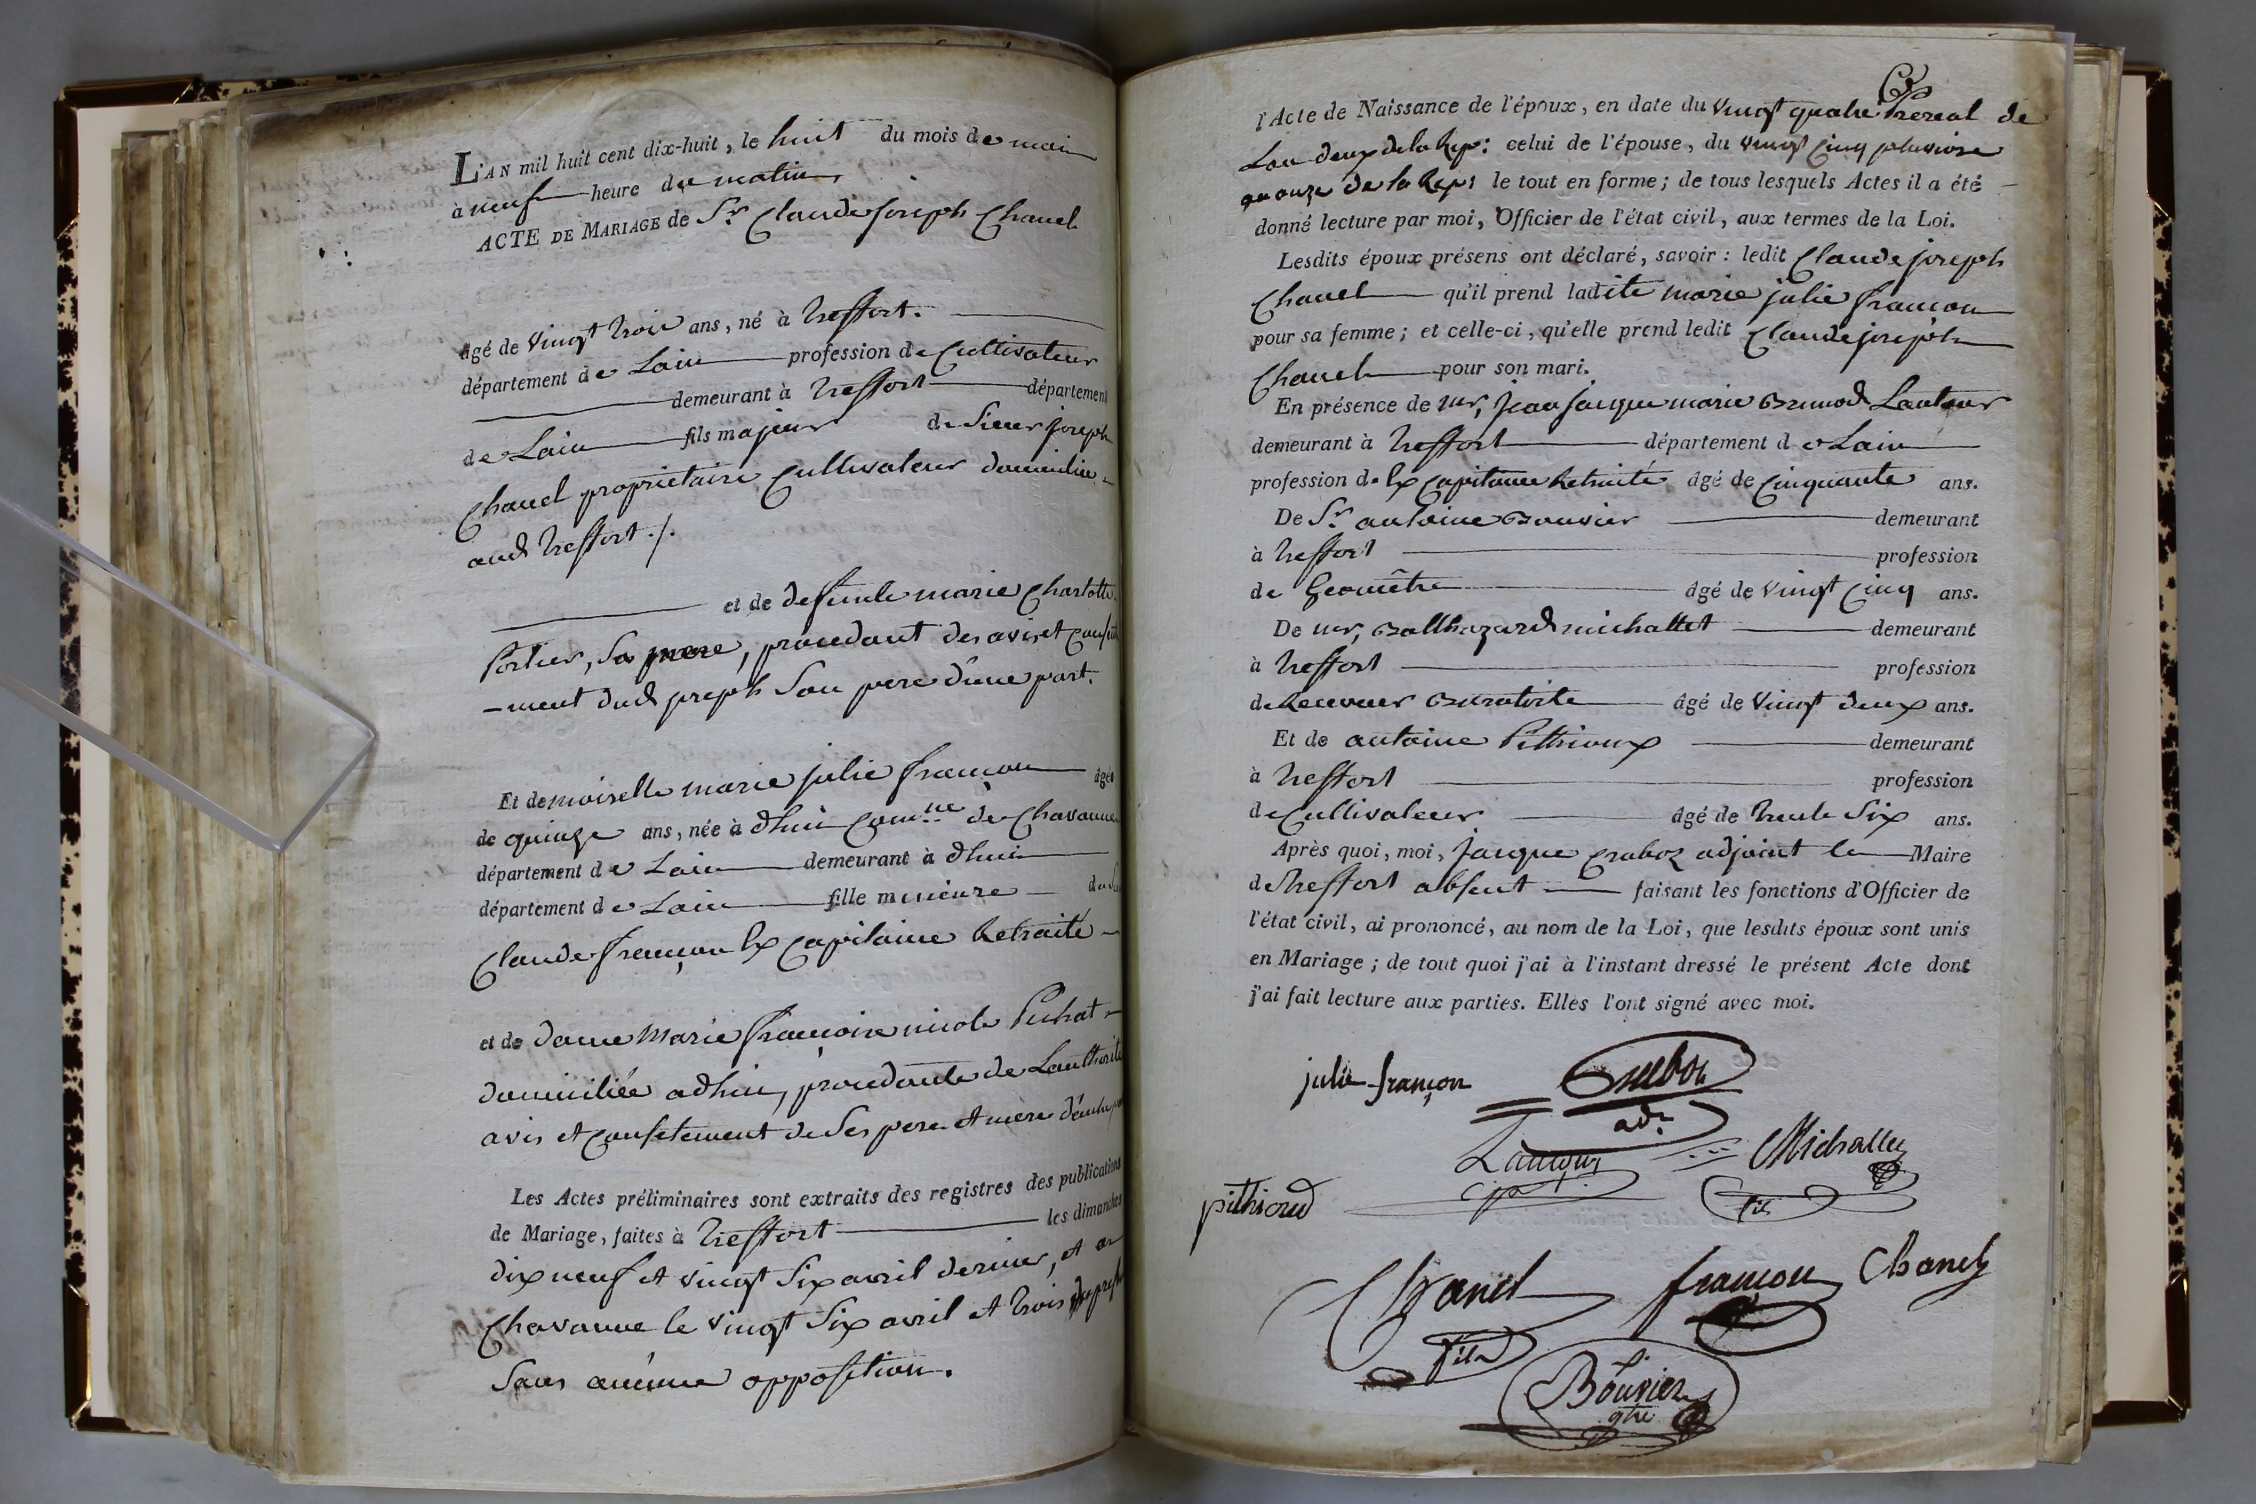 L'AN mil huit cent dix-huit, le huit du mois de mai
à neuf heure du matin,
ACTE DE MARIAGE de Sr Claude joseph Chanel
âgé de vingt trois ans, né à treffort.
département de Lain profession de Cultivateur
demeurant à treffort département
de Lain fils majeur de Sieur joseph
Chanel proprietaire Cultivateur domicilié
aud treffort ./.
et de defunte marie Charlotte
Portier, Sa mere, procedant des avis et consente
-ment dud joseph Son pere d'une part.
Et demoiselle marie julie françon âgée
de quinze ans, née à dhuis comne de Chavanne
département de Lain demeurant à dhuis
département de Lain fille mineure de Sr
Claude françon Ex capitaine Retraité
et de dame Marie françoise nicole Puhat
domiciliée adhuis, procedante de Lauthorité
avis et consetement de Ses pere et mere d'autre part
Les Actes préliminaires sont extraits des registres des publications
de Mariage, faites à treffort les dimanches
dix neuf et vingt Six avril dernier, et a
Chavanne le vingt Six avril et trois du present
Sans aucune opposition.
l'Acte de Naissance de l'époux, en date du vingt quatre Prereal de
Lan deux de la Rep: celui de l'épouse, du vingt cinq pluviose
an onze de la Rep: le tout en forme; de tous lesquels Actes il a été
donné lecture par moi, Officier de l'état civil, aux termes de la Loi.
Lesdits époux présens ont déclaré, savoir : ledit Claude joseph
Chanel qu'il prend ladite marie julie françon
pour sa femme; et celle-ci, qu'elle prend ledit Claude joseph
Chanel pour son mari.
En présence de mr, jean jacque marie Brunod Lauteur
demeurant à treffort département de Lain
profession de Ex capitaine Retraité âgé de Cinquante ans.
De Sr antoine Bouvier demeurant
à treffort profession
de Geomêtre âgé de vingt Cinq ans.
De mr, Balthazard michallet demeurant
à treffort profession
de Receveur Buraliste âgé de vingt deux ans.
Et de antoine Pithioux demeurant
à treffort profession
de Cultivateur âgé de trente Six ans.
Après quoi, moi, jacque Graboz adjoint le Maire
de treffort absent faisant les fonctions d'Officier de
l'état civil, ai prononcé, au nom de la Loi, que lesdits époux sont unis
en Mariage; de tout quoi j'ai à l'instant dressé le présent Acte dont
j'ai fait lecture aux parties. Elles l'ont signé avec moi.
julie françon Graboz
adt
Michallet
fils
pithioud
Chanel françon Chanel
fils
Bouvier
gtre